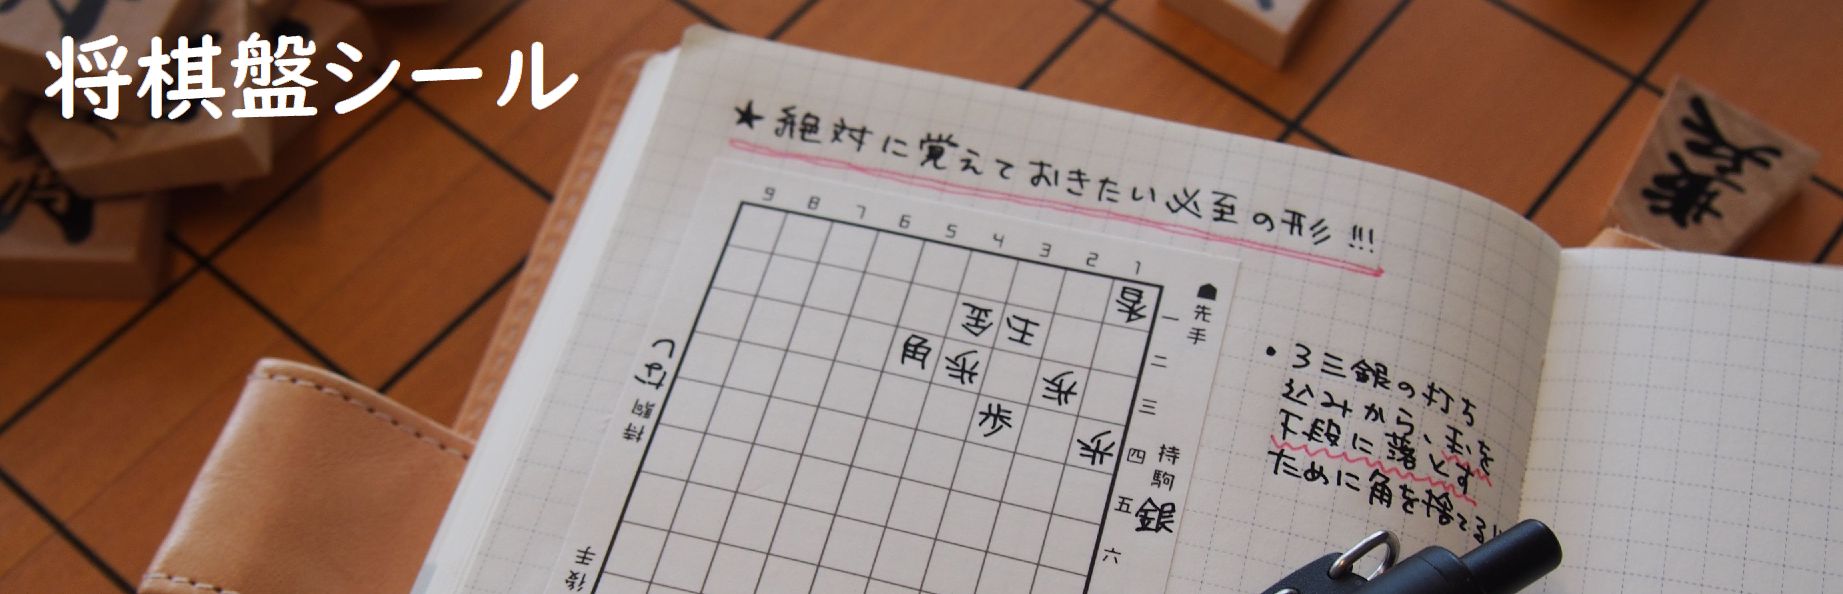 将棋盤シール
★絶対に覚えておきたい必至の形!!!
9 8 7 6 5 4 3 2 1
香 一
金 玉 二
角 歩 歩 三
歩 歩 四
五
六
☗先手
持駒 銀
後手
持駒 なし
・3三銀の打ち
込みから、玉を
下段に落とす
ために角を捨てる!!